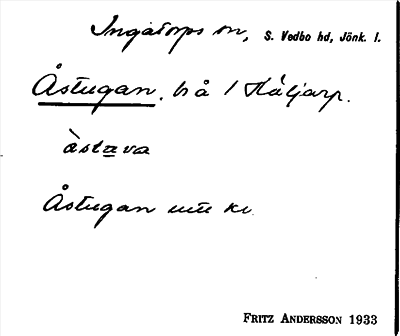 Ingatorps sn, S. Vedbo hd, Jönk. l.
Åstugan, bå / Håljarp.
àstava
Åstugan
FRITZ ANDERSSON 1933